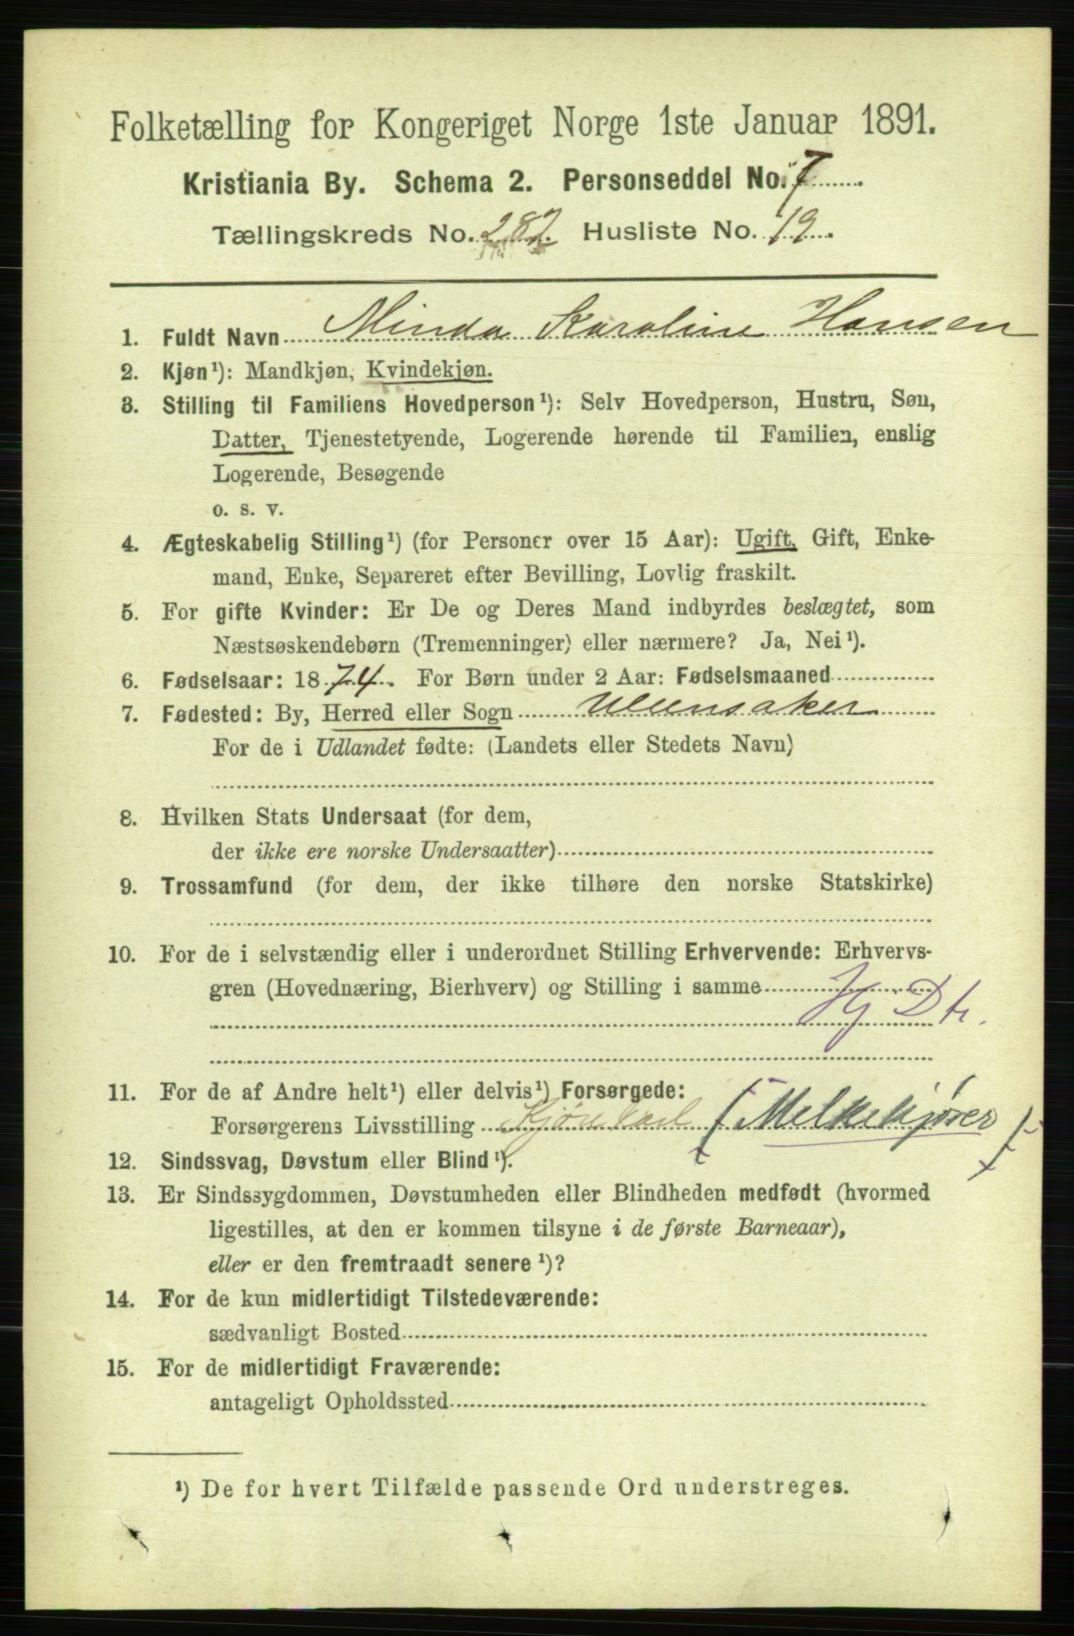 Folketælling for Kongeriget Norge 1ste Januar 1891.
Kristiania By. Schema 2. Personseddel No. 7
Tællingskreds No. 287. Husliste No. 19.
1. Fuldt Navn Minda Karoline Hansen
2. Kjøn¹): Mandkjøn, Kvindekjøn.
3. Stilling til Familiens Hovedperson¹): Selv Hovedperson, Hustru, Søn,
Datter, Tjenestetyende, Logerende hørende til Familien, enslig
Logerende, Besøgende
o. s. v.
4. Ægteskabelig Stilling¹) (for Personer over 15 Aar): Ugift, Gift, Enke-
mand, Enke, Separeret efter Bevilling, Lovlig fraskilt.
5. For gifte Kvinder: Er De og Deres Mand indbyrdes beslægtet, som
Næstsøskendebørn (Tremenninger) eller nærmere? Ja, Nei¹).
6. Fødselsaar: 1874. For Børn under 2 Aar: Fødselsmaaned
7. Fødested: By, Herred eller Sogn Ullensaker
For de i Udlandet fødte: (Landets eller Stedets Navn)
8. Hvilken Stats Undersaat (for dem,
der ikke ere norske Undersaatter)
9. Trossamfund (for dem, der ikke tilhøre den norske Statskirke)
10. For de i selvstændig eller i underordnet Stilling Erhvervende: Erhvervs-
gren (Hovednæring, Bierhverv) og Stilling i samme
Hj Dtr.
11. For de af Andre helt¹) eller delvis¹) Forsørgede:
Forsørgerens Livsstilling (Melkekjører)
12. Sindssvag, Døvstum eller Blind¹).
13. Er Sindssygdommen, Døvstumheden eller Blindheden medfødt (hvormed
ligestilles, at den er kommen tilsyne i de første Barneaar),
eller er den fremtraadt senere¹)?
14. For de kun midlertidigt Tilstedeværende:
sædvanligt Bosted
15. For de midlertidigt Fraværende:
antageligt Opholdssted
¹) De for hvert Tilfælde passende Ord understreges.